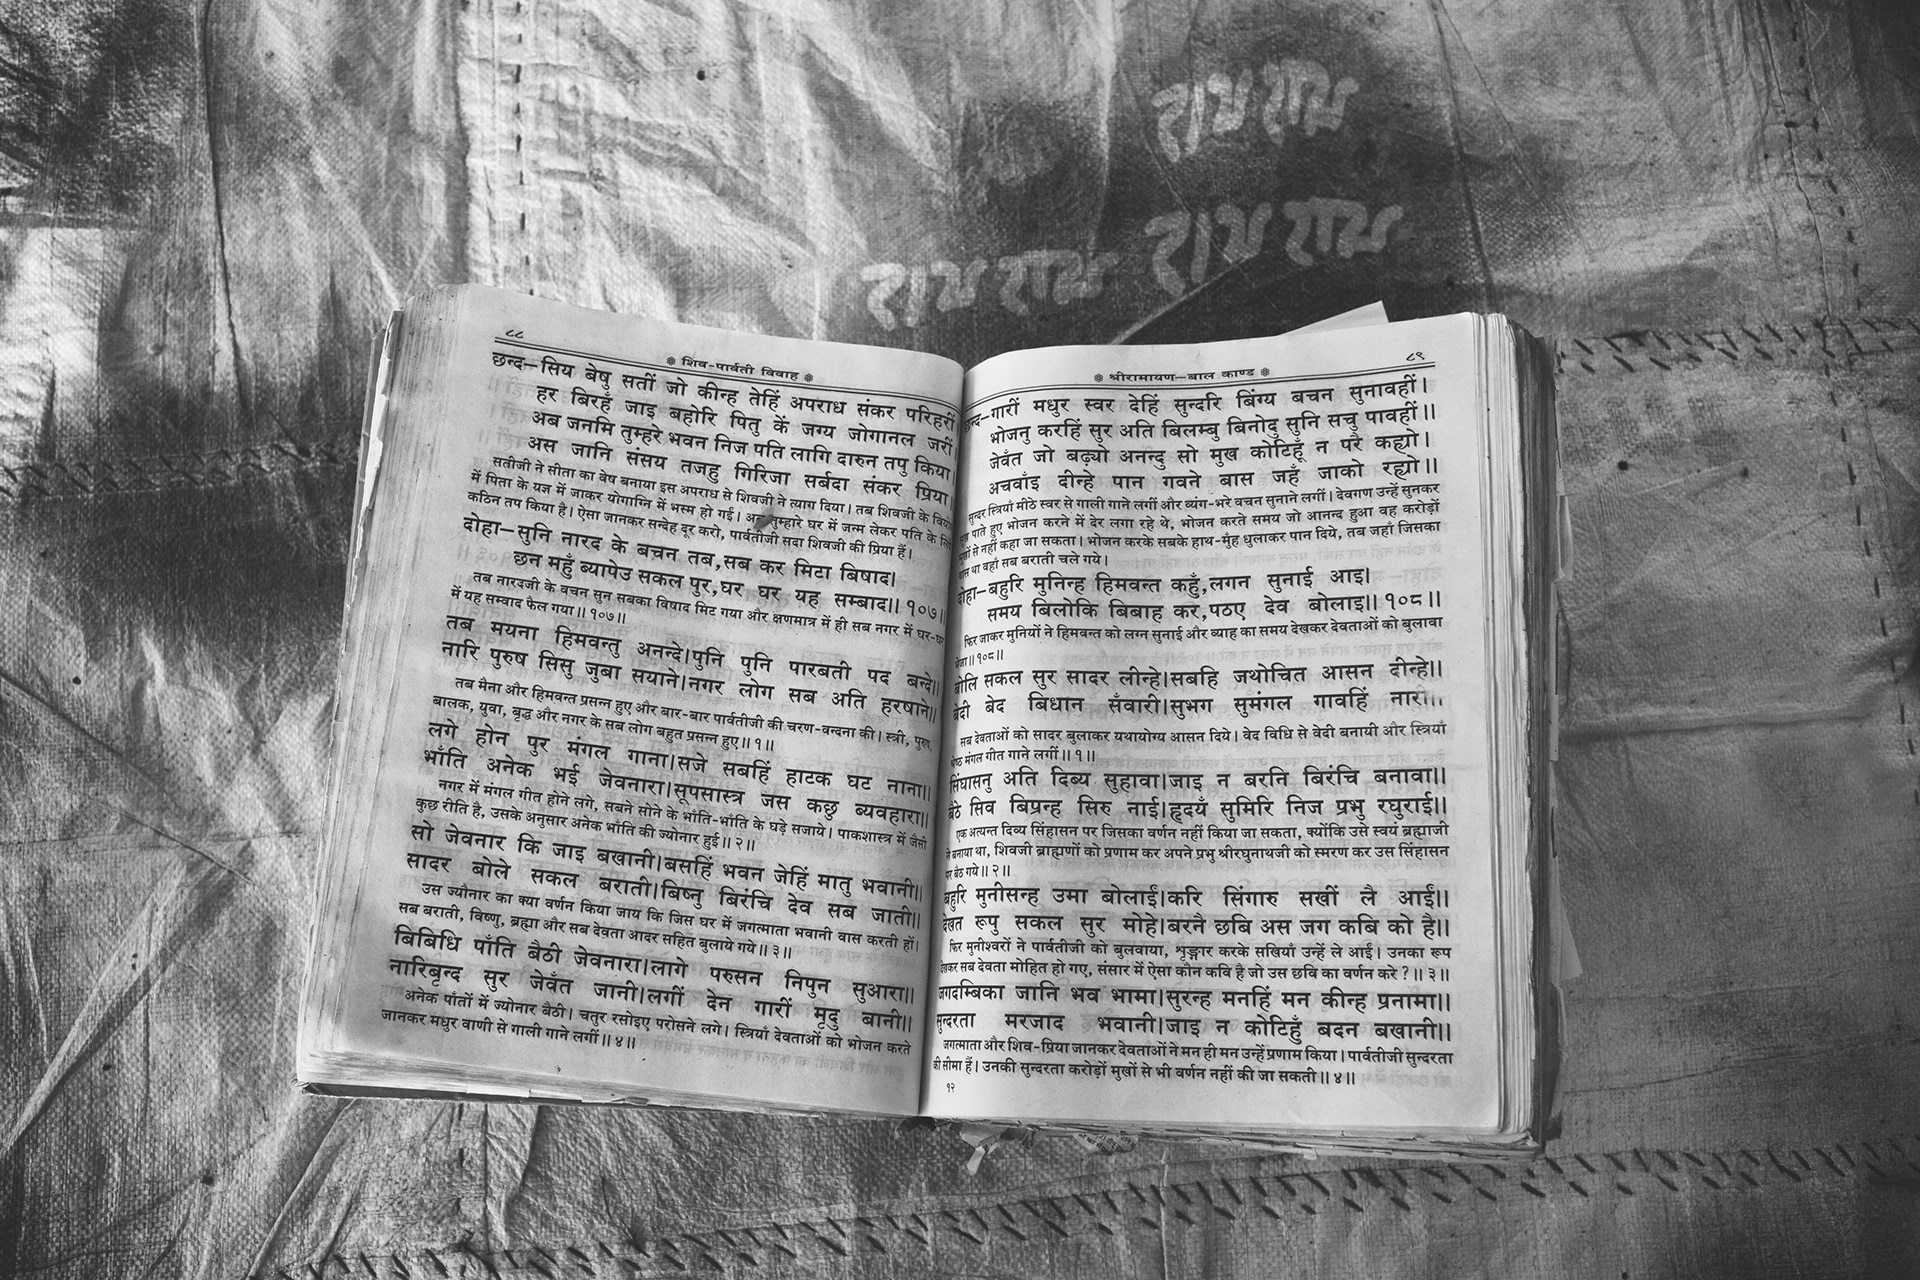 राम राम
राम राम
राम राम
८८
❁ शिव-पार्वती विवाह ❁
छन्द—सिय बेषु सतीं जो कीन्ह तेहिं अपराध संकर परिहरीं
हर बिरहँ जाइ बहोरि पितु कें जग्य जोगानल जरीं
अब जनमि तुम्हरे भवन निज पति लागि दारुन तपु किया।
अस जानि संसय तजहु गिरिजा सर्बदा संकर प्रिया।
सतीजी ने सीता का वेष बनाया इस अपराध से शिवजी ने त्याग दिया। तब शिवजी के वियो
में पिता के यज्ञ में जाकर योगाग्नि में भस्म हो गईं। अब तुम्हारे घर में जन्म लेकर पति के लि
कठिन तप किया है। ऐसा जानकर सन्देह दूर करो, पार्वतीजी सदा शिवजी की प्रिया हैं।
दोहा—सुनि नारद के बचन तब,सब कर मिटा बिषाद।
छन महुँ ब्यापेउ सकल पुर,घर घर यह सम्बाद॥१०७॥
तब नारदजी के वचन सुन सबका विषाद मिट गया और क्षणमात्र में ही सब नगर में घर-घर
में यह सम्वाद फैल गया॥१०७॥
तब मयना हिमवन्तु अनन्दे।पुनि पुनि पारबती पद बन्दे॥
नारि पुरुष सिसु जुबा सयाने।नगर लोग सब अति हरषाने॥
तब मैना और हिमवन्त प्रसन्न हुए और बार-बार पार्वतीजी की चरण-वन्दना की। स्त्री, पुरुष,
बालक, युवा, बृद्ध और नगर के सब लोग बहुत प्रसन्न हुए॥१॥
लगे होन पुर मंगल गाना।सजे सबहिं हाटक घट नाना॥
भाँति अनेक भई जेवनारा।सूपसास्त्र जस कछु ब्यवहारा॥
नगर में मंगल गीत होने लगे, सबने सोने के भाँति-भाँति के घड़े सजाये। पाकशास्त्र में जैसी
कुछ रीति है, उसके अनुसार अनेक भाँति की ज्योनार हुई॥२॥
सो जेवनार कि जाइ बखानी।बसहिं भवन जेहिं मातु भवानी॥
सादर बोले सकल बराती।बिष्नु बिरंचि देव सब जाती॥
उस ज्यौनार का क्या वर्णन किया जाय कि जिस घर में जगत्माता भवानी वास करती हों।
सब बराती, विष्णु, ब्रह्मा और सब देवता आदर सहित बुलाये गये॥३॥
बिबिधि पाँति बैठी जेवनारा।लागे परुसन निपुन सुआरा॥
नारिबृन्द सुर जेवँत जानी।लगीं देन गारीं मृदु बानी॥
अनेक पाँतों में ज्योनार बैठी। चतुर रसोइए परोसने लगे। स्त्रियाँ देवताओं को भोजन करते
जानकर मधुर वाणी से गाली गाने लगीं॥४॥
८९
❁ श्रीरामायण—बाल काण्ड ❁
छन्द—गारीं मधुर स्वर देहिं सुन्दरि बिंग्य बचन सुनावहीं।
भोजनु करहिं सुर अति बिलम्बु बिनोदु सुनि सचु पावहीं॥
जेवँत जो बढ़्यो अनन्दु सो मुख कोटिहूँ न परै कह्यो।
अचवाँइ दीन्हे पान गवने बास जहँ जाको रह्यो॥
सुन्दर स्त्रियाँ मीठे स्वर से गाली गाने लगीं और व्यंग-भरे वचन सुनाने लगीं। देवगण उन्हें सुनकर
सुख पाते हुए भोजन करने में देर लगा रहे थे, भोजन करते समय जो आनन्द हुआ वह करोड़ों
मुखों से नहीं कहा जा सकता। भोजन करके सबके हाथ-मुँह धुलाकर पान दिये, तब जहाँ जिसका
वास था वहाँ सब बराती चले गये।
दोहा—बहुरि मुनिन्ह हिमवन्त कहुँ,लगन सुनाई आइ।
समय बिलोकि बिबाह कर,पठए देव बोलाइ॥१०८॥
फिर जाकर मुनियों ने हिमवन्त को लग्न सुनाई और ब्याह का समय देखकर देवताओं को बुलावा
भेजा॥१०८॥
बोलि सकल सुर सादर लीन्हे।सबहि जथोचित आसन दीन्हे॥
बेदी बेद बिधान सँवारी।सुभग सुमंगल गावहिं
सब देवताओं को सादर बुलाकर यथायोग्य आसन दिये। वेद विधि से वेदी बनायी और स्त्रियाँ
श्रेष्ठ मंगल गीत गाने लगीं॥१॥
सिंघासनु अति दिब्य सुहावा।जाइ न बरनि बिरंचि बनावा॥
बैठे सिव बिप्रन्ह सिरु नाई।हृदयँ सुमिरि निज प्रभु रघुराई॥
एक अत्यन्त दिव्य सिंहासन पर जिसका वर्णन नहीं किया जा सकता, क्योंकि उसे स्वयं ब्रह्माजी
ने बनाया था, शिवजी ब्राह्मणों को प्रणाम कर अपने प्रभु श्रीरघुनाथजी को स्मरण कर उस सिंहासन
पर बैठ गये॥२॥
बहुरि मुनीसन्ह उमा बोलाईं।करि सिंगारु सखीं लै आईं॥
देखत रूपु सकल सुर मोहे।बरनै छबि अस जग कबि को है॥
फिर मुनीश्वरों ने पार्वतीजी को बुलवाया, श्रृङ्गार करके सखियाँ उन्हें ले आईं। उनका रूप
देखकर सब देवता मोहित हो गए, संसार में ऐसा कौन कवि है जो उस छवि का वर्णन करे ?॥३॥
जगदम्बिका जानि भव भामा।सुरन्ह मनहिं मन कीन्ह प्रनामा॥
सुन्दरता मरजाद भवानी।जाइ न कोटिहुँ बदन बखानी॥
जगत्माता और शिव-प्रिया जानकर देवताओं ने मन ही मन उन्हें प्रणाम किया। पार्वतीजी सुन्दरता
की सीमा हैं। उनकी सुन्दरता करोड़ों मुखों से भी वर्णन नहीं की जा सकती॥४॥
१२